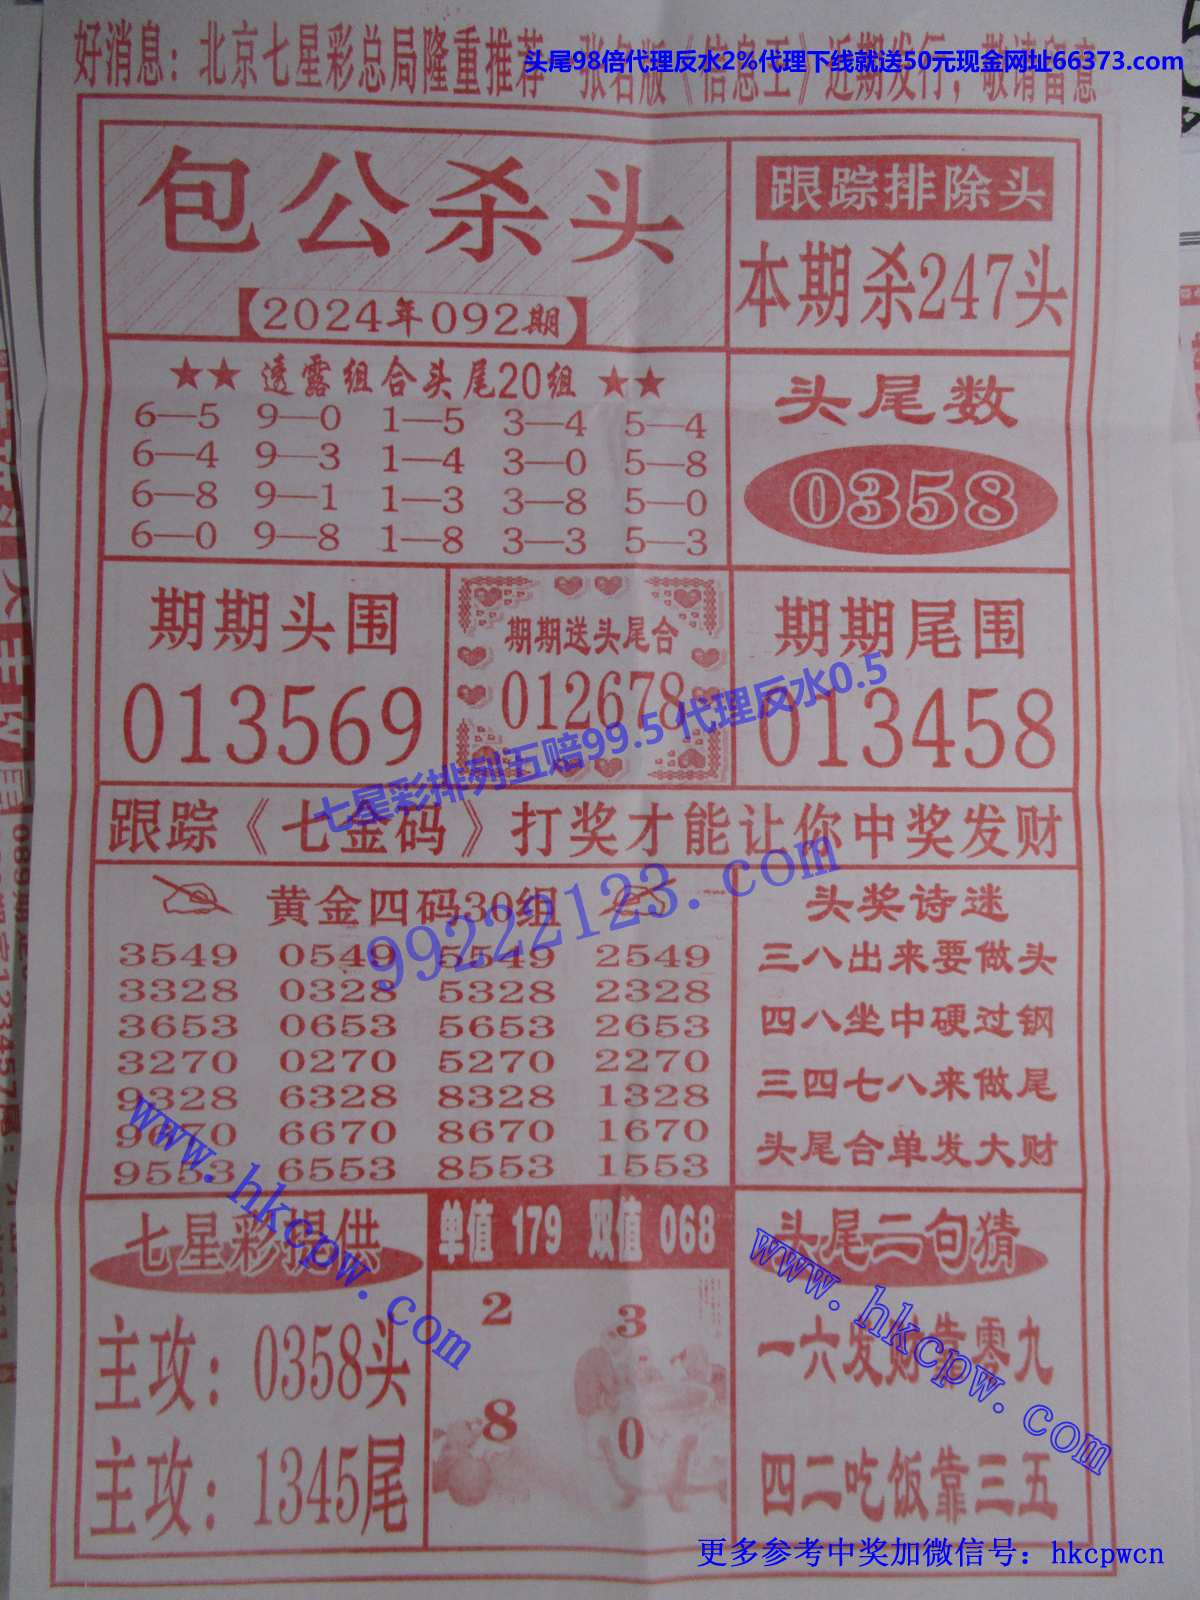 好消息：北京七星彩总局隆重推荐一张名版《信息王》近期发行，敬请留意
头尾98倍代理反水2%代理下线就送50元现金网址66373.com
包公杀头
【2024年092期】
跟踪排除头
本期杀247头
★★ 透露组合头尾20组 ★★
6—5 9—0 1—5 3—4 5—4
6—4 9—3 1—4 3—0 5—8
6—8 9—1 1—3 3—8 5—0
6—0 9—8 1—8 3—3 5—3
头尾数
0358
期期头围
013569
期期送头尾合
012678
期期尾围
013458
七星彩排列五赔99.5 代理反水0.5
跟踪《七金码》打奖才能让你中奖发财
99222123.com
黄金四码30组
3549 0549 5549 2549
3328 0328 5328 2328
3653 0653 5653 2653
3270 0270 5270 2270
9328 6328 8328 1328
9670 6670 8670 1670
9553 6553 8553 1553
头奖诗迷
三八出来要做头
四八坐中硬过钢
三四七八来做尾
头尾合单发大财
www.hkcpw.com
七星彩提供
主攻：0358头
主攻：1345尾
单值 179 双值 068
2 3
8 0
头尾二句猜
一六发财靠零九
四二吃饭靠三五
www.hkcpw.com
更多参考中奖加微信号：hkcpwcn